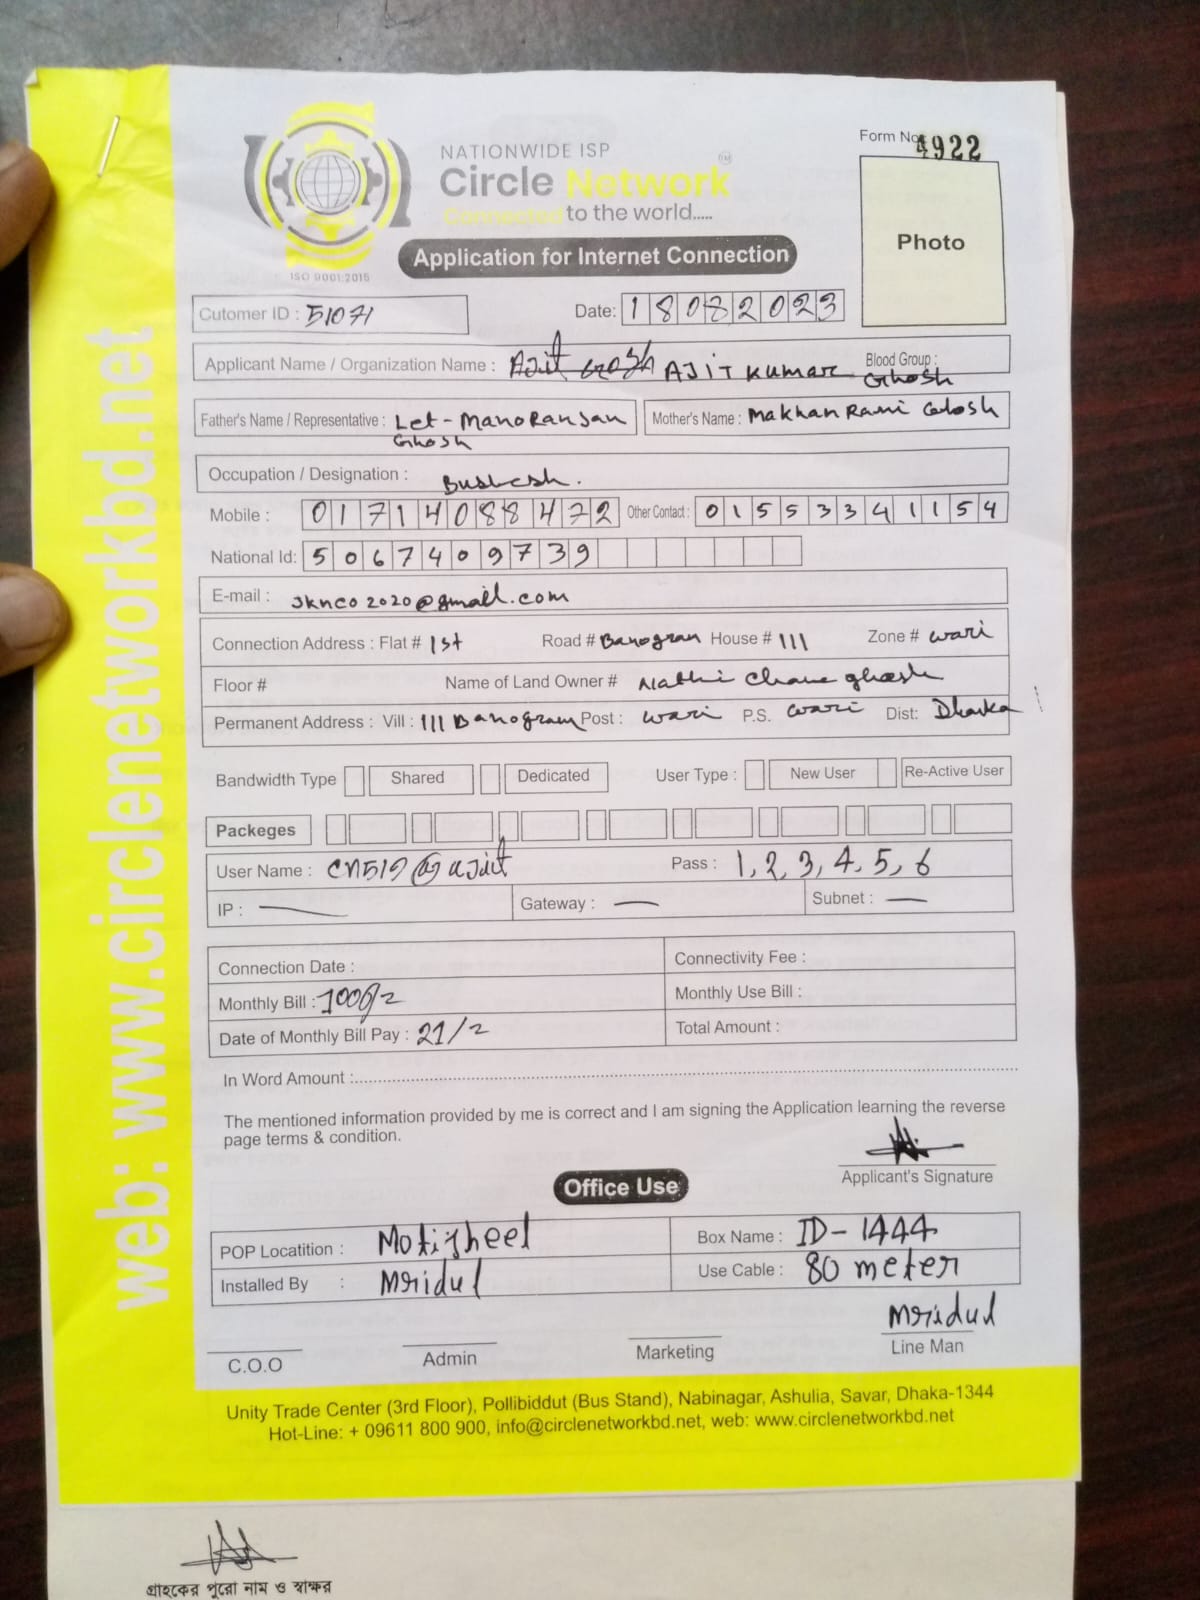 Form No 4922
NATIONWIDE ISP
Circle Network
Connected to the world.....
ISO 9001:2015
Application for Internet Connection
Photo
Cutomer ID : 51071
Date: 18082023
Applicant Name / Organization Name : Ajit Gosh AJIT KUMAR Blood Group :
Ghosh
Father's Name / Representative : Let - Manoranjan Mother's Name : Makhan Rani Ghosh
Ghosh
Occupation / Designation :
Mobile : 01714088472 Other Contact : 01553341154
National Id: 5067409739
E-mail : jknco2020@gmail.com
Connection Address : Flat # 1st Road # Banogram House # 111 Zone # wari
Floor # Name of Land Owner #
Permanent Address : Vill : 111 Banogram Post : wari P.S. wari Dist: Dhaka
Bandwidth Type Shared Dedicated User Type : New User Re-Active User
Packeges
User Name : Pass : 1, 2, 3, 4, 5, 6
IP : — Gateway : — Subnet : —
Connection Date : Connectivity Fee :
Monthly Bill : Monthly Use Bill :
Date of Monthly Bill Pay : 21/2 Total Amount :
In Word Amount :
The mentioned information provided by me is correct and I am signing the Application learning the reverse
page terms & condition.
Applicant's Signature
Office Use
POP Locatition : Motijheel Box Name : ID - 1444
Installed By : Mridul Use Cable : 80 meter
Mridul
C.O.O Admin Marketing Line Man
Unity Trade Center (3rd Floor), Pollibiddut (Bus Stand), Nabinagar, Ashulia, Savar, Dhaka-1344
Hot-Line: + 09611 800 900, info@circlenetworkbd.net, web: www.circlenetworkbd.net
web: www.circlenetworkbd.net
গ্রাহকের পুরো নাম ও স্বাক্ষর